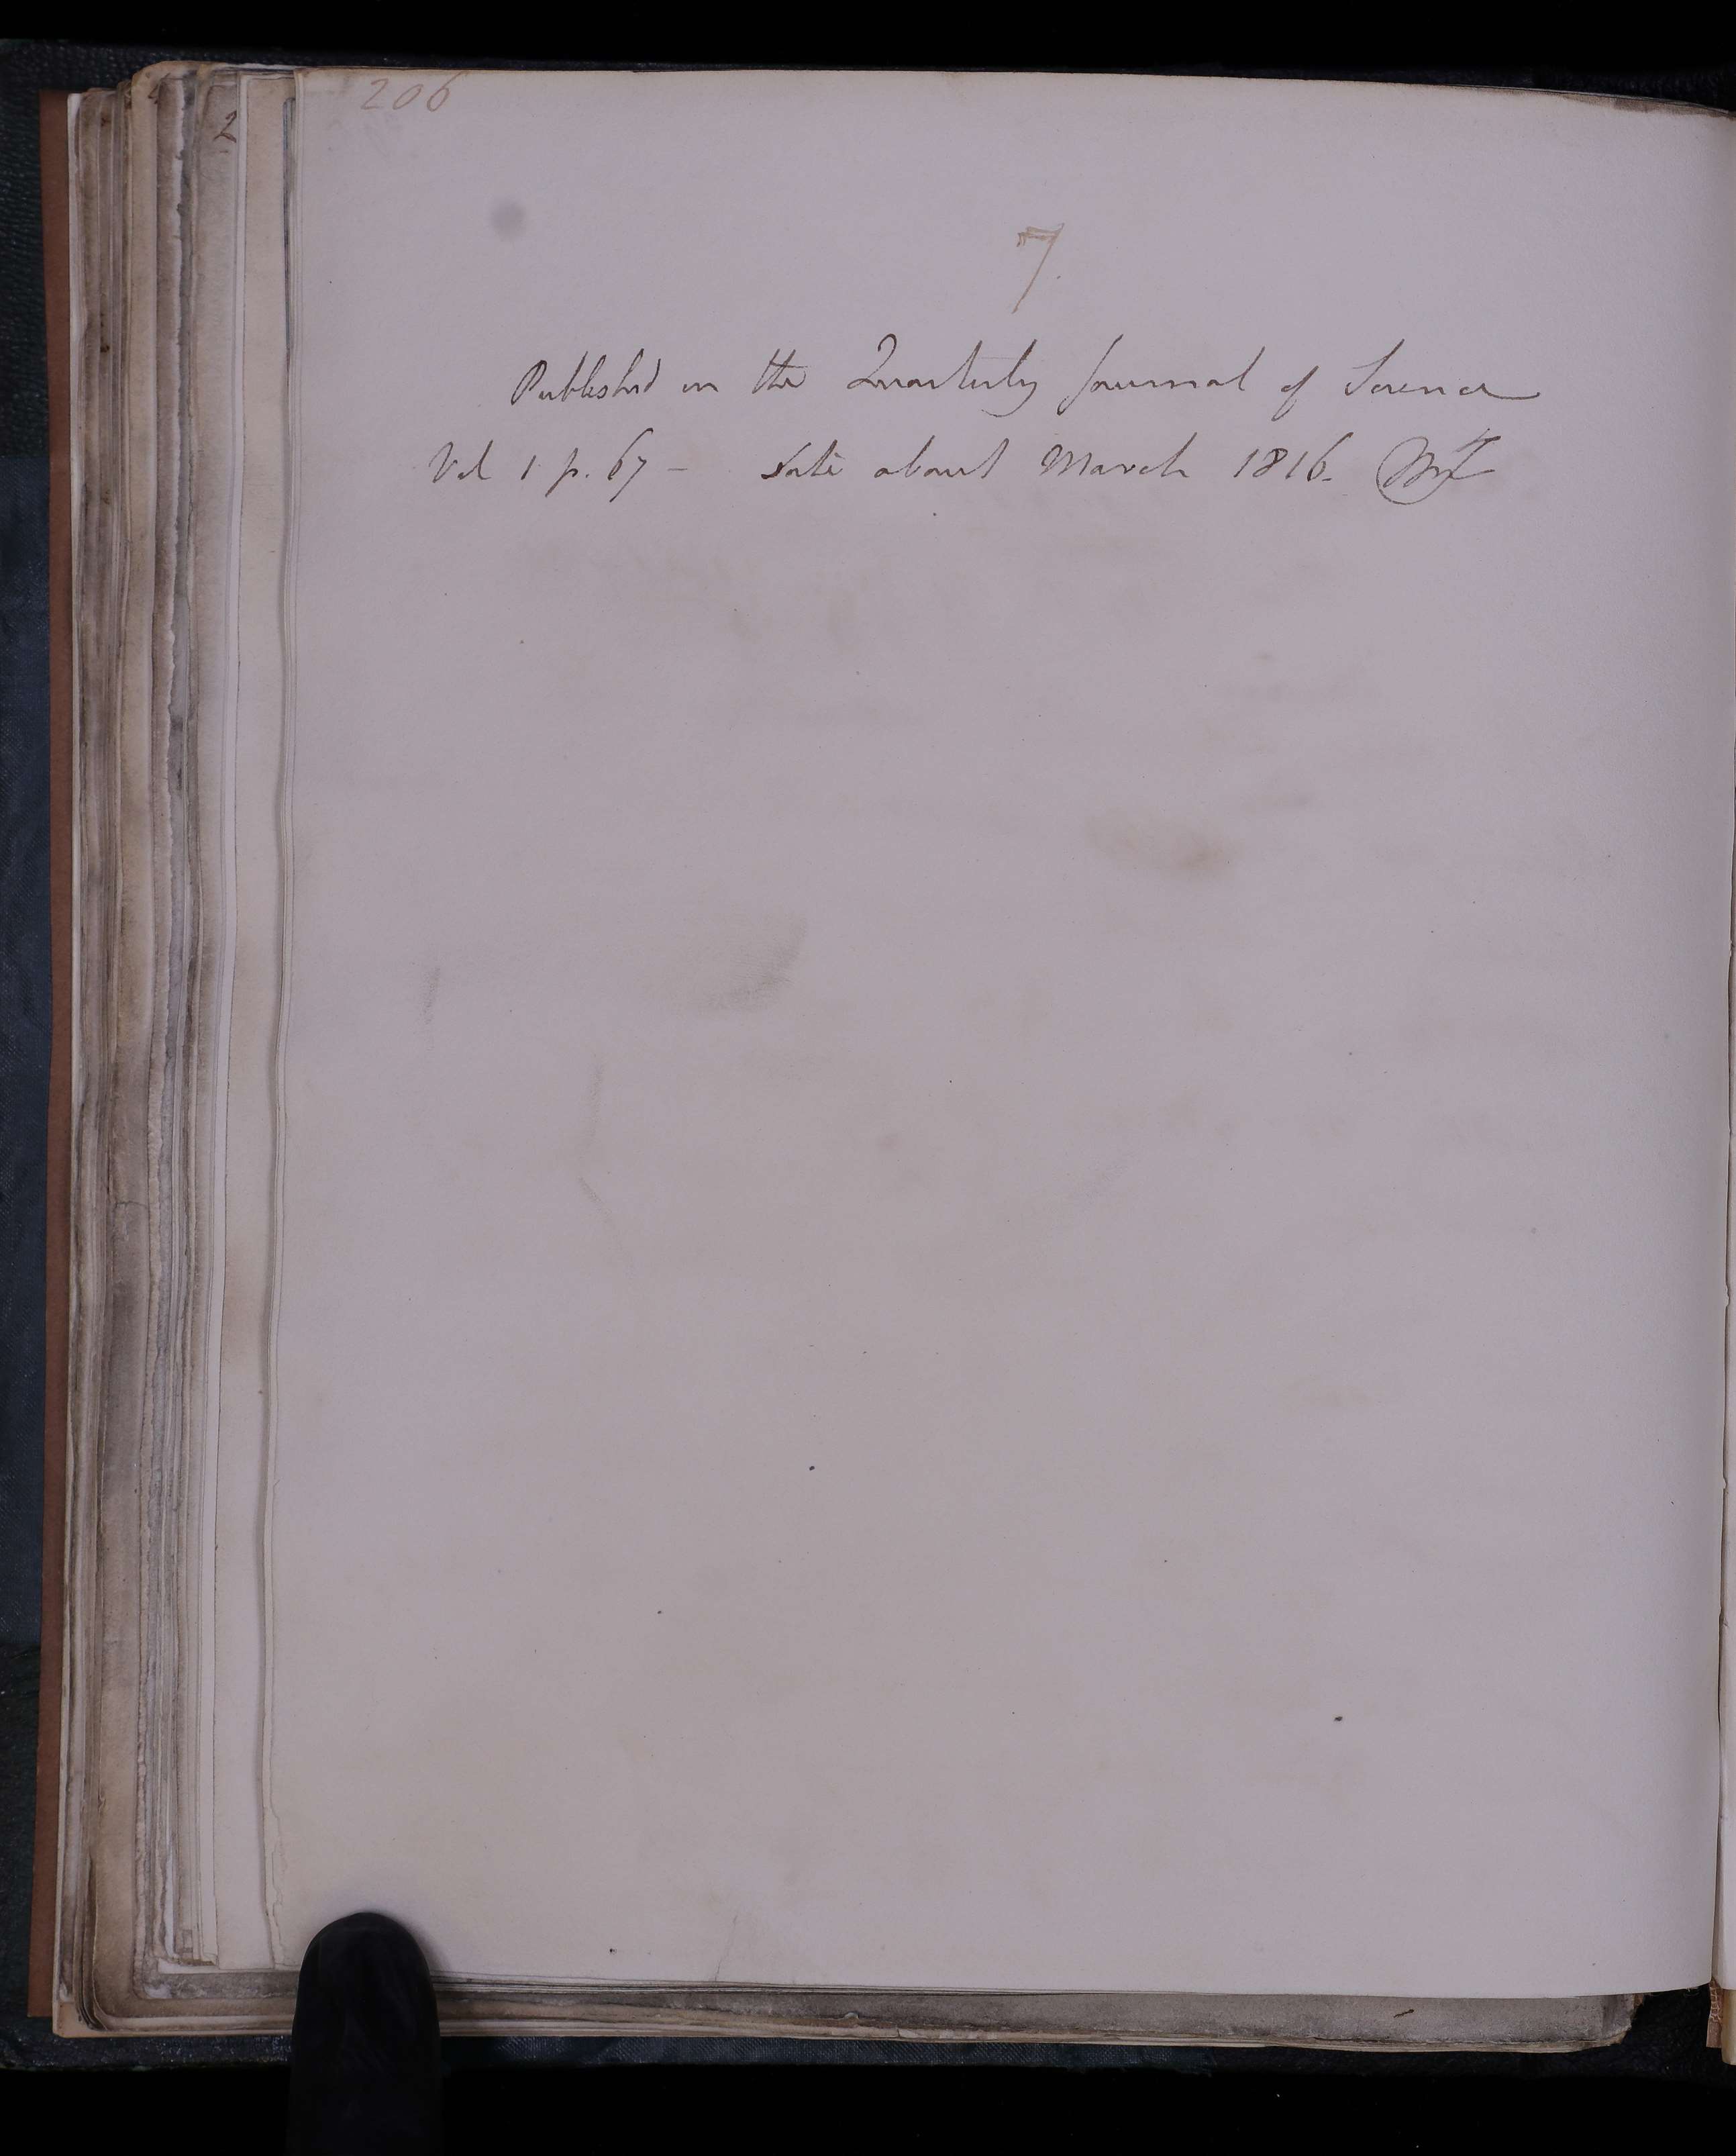 206
2
7
Published in the Quarterly Journal of Science
Vol 1 p. 67 - date about March 1816.